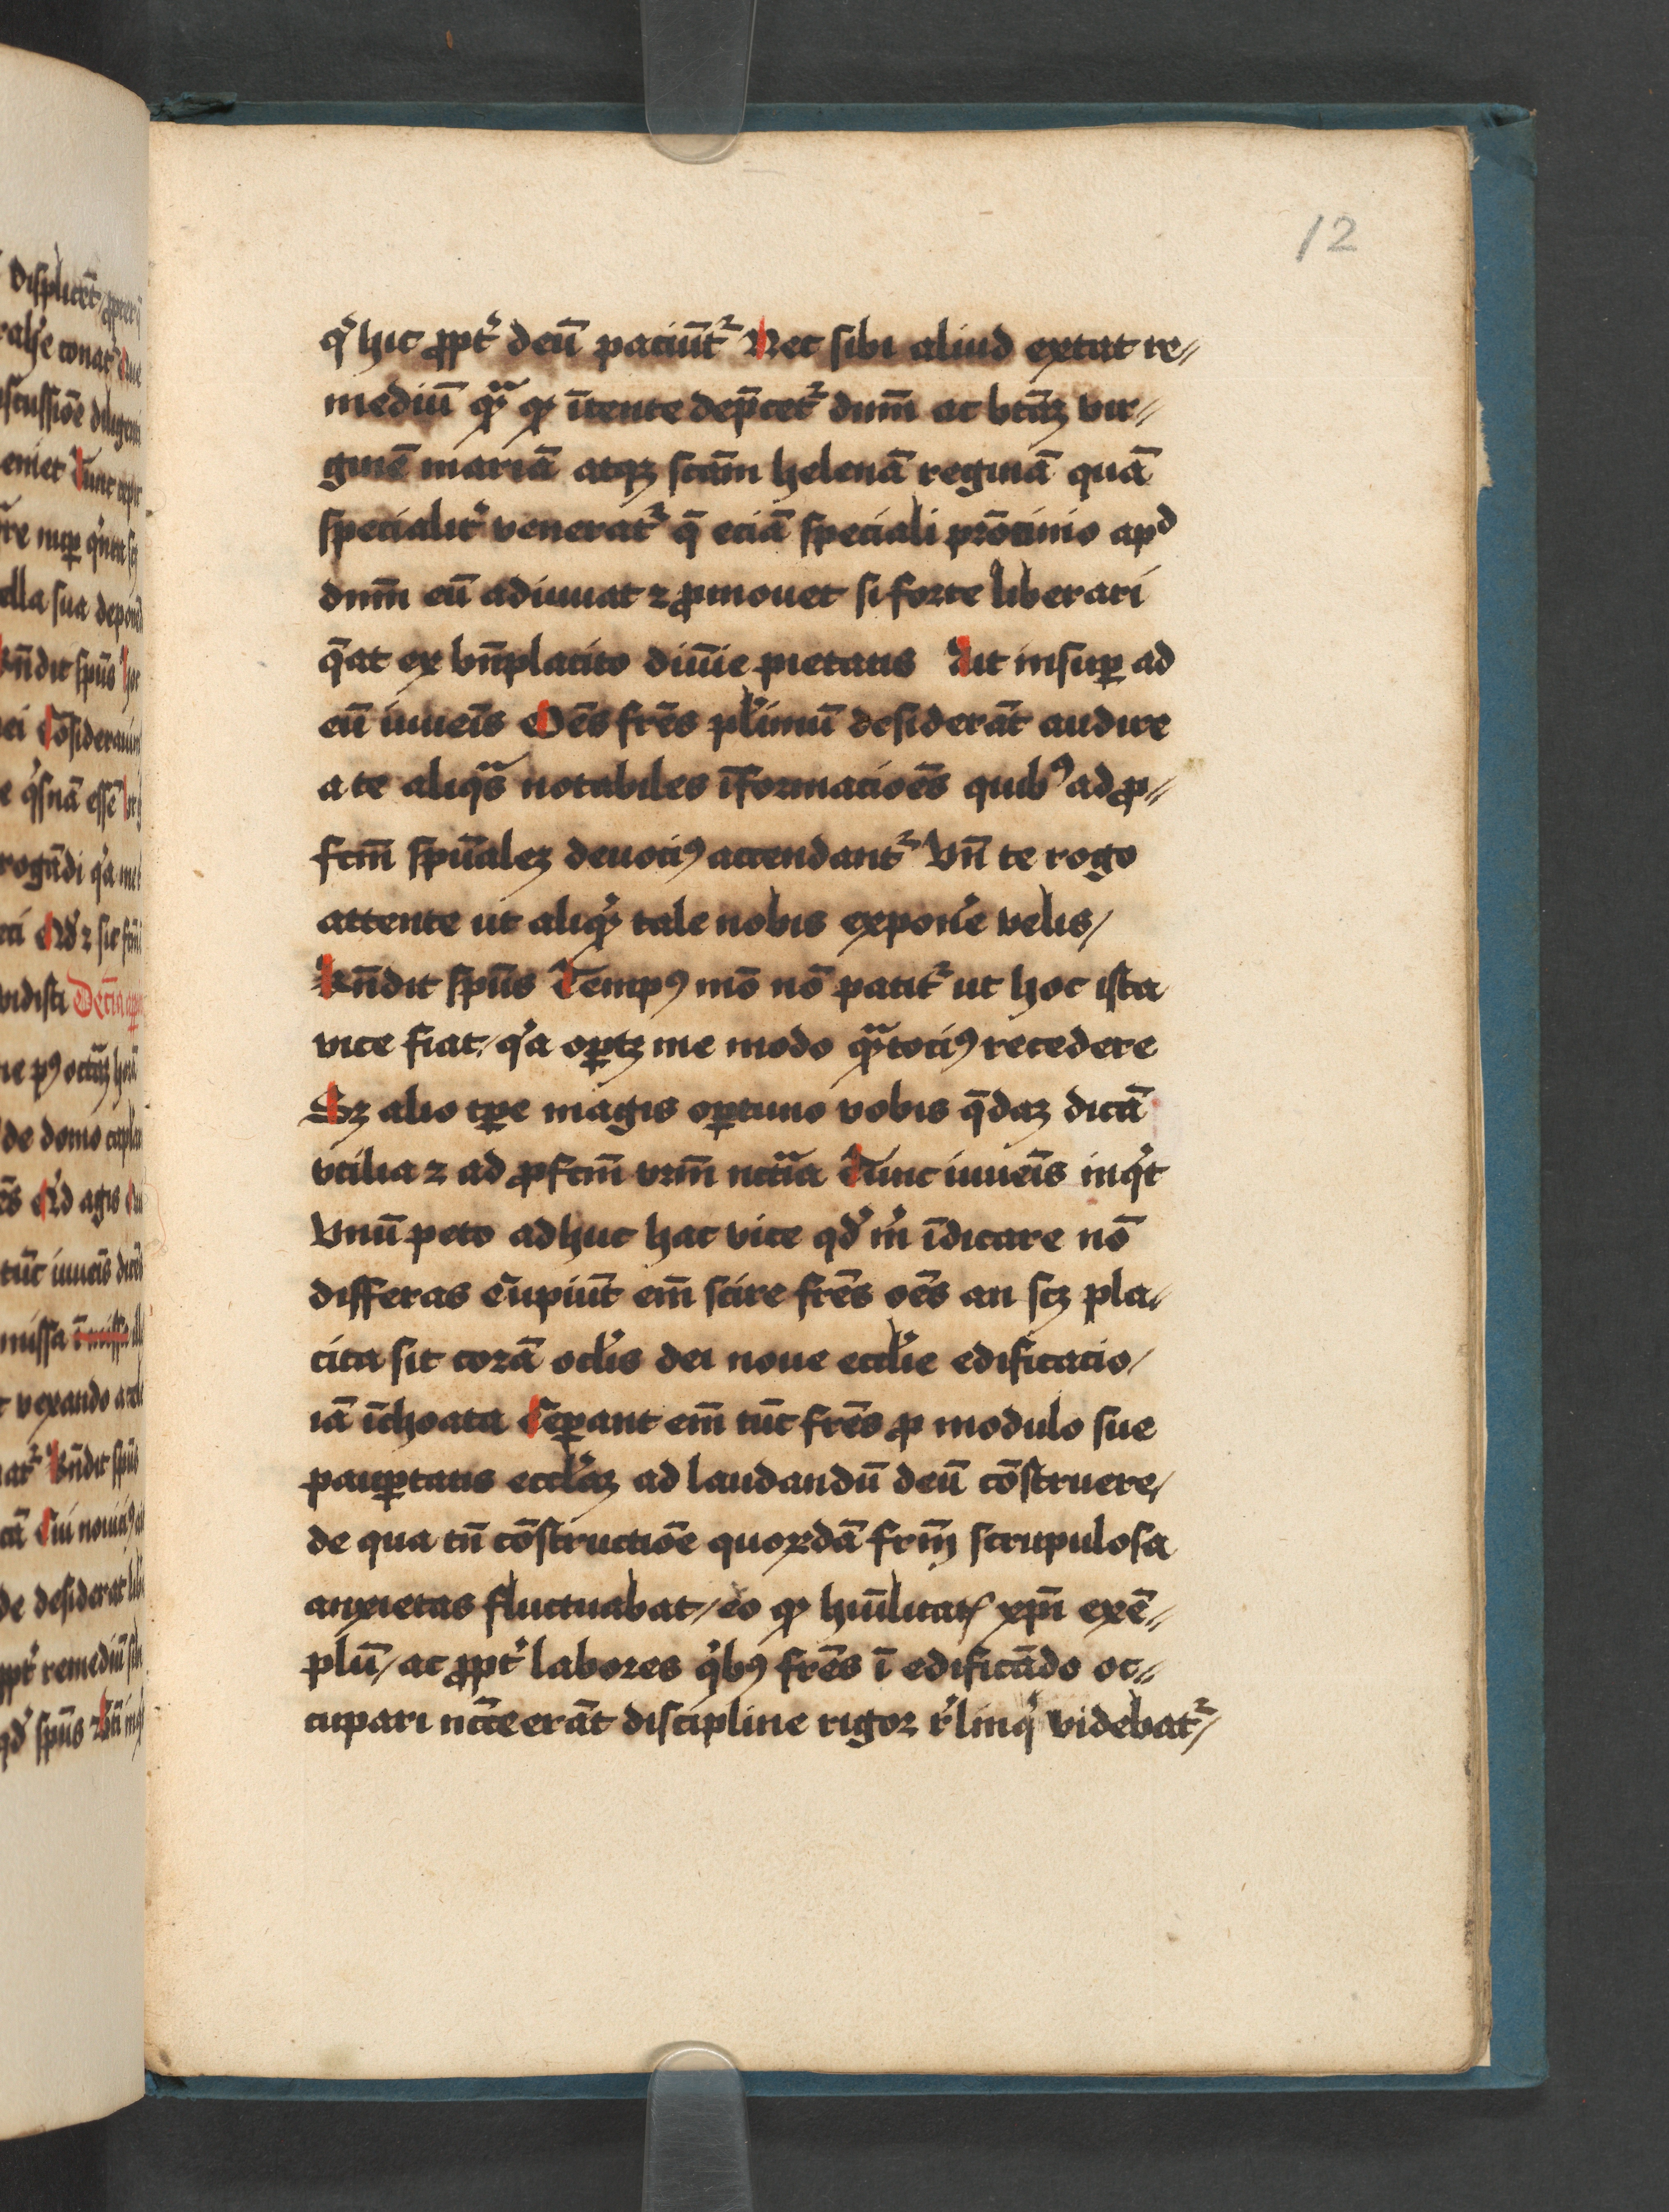 12
qͥ hic ꝓpt̾ deū paciūt᷑ Nec sibi aliud extat re⸗
mediū qᷓ ꝙ īſtente dep̄cet᷑ dnm̄ ac btāꝫ vir⸗
ginē mariā atqꝫ scām helenā reginā quā
specialit̾ venerat᷑ q̄ eciā speciali prōcinio apᵈ
dnm̄ eū adiuuat ⁊ ꝓmouet si forte liberari
q̄at ex bn̄placito diuīe pietatis Ait insuꝑ ad
eū iuueīs Oēs fr̄es pl̾imū desiderāt audire
a te aliqᷓs notabiles īformacōes quibꝰ ad ꝓ⸗
fcm̄ spūalez deuociꝰ accendant᷑ Vn̄ te rogo
attente ut aliqͩ tale nobis expon̾e velis/
Rn̄dit spūs Tempꝰ mō nō patit᷑ ut hoc ista
vice fiat/ qͥa oꝑtꝫ me modo qᷓtociꝰ recedere
Sꝫ alio tꝑe magis oꝑtuno vobis q̄daꝫ dicā
vtilia ⁊ ad ꝓfcm̄ vrm̄ nccͣia Tunc iuueīs inqͥt
Vnū peto adhuc hac vice qd̾ mͥ īdicare nō
differas Cupiūt em̄ scire fr̄es oēs an scꝫ pla⸗
cita sit corā ocl̾is dei noue eccl̾ie edificacio/
iā īchoata Ceꝑant em̄ tūc fr̄es ꝓ modulo sue
pauꝑtatis eccl̾iaꝫ ad laudandū deū cōstruere/
de qua tn̄ cōstructiōe quorūdā fr̄m scrupulosa
anxietas fluctuabat/ eo ꝙ hūilitatꝭ xp̄i exē⸗
plū/ ac ꝓpt̾ labores qͥbꝰ fr̄es ī edificādo oc⸗
cupari nccē erāt discipline rigor r̾linqͥ videbat᷑/